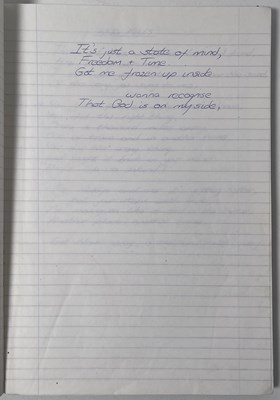 It's just a state of mind,
Freedom + Time.
Got me frozen up inside
wanna recognise
That God is on my side,